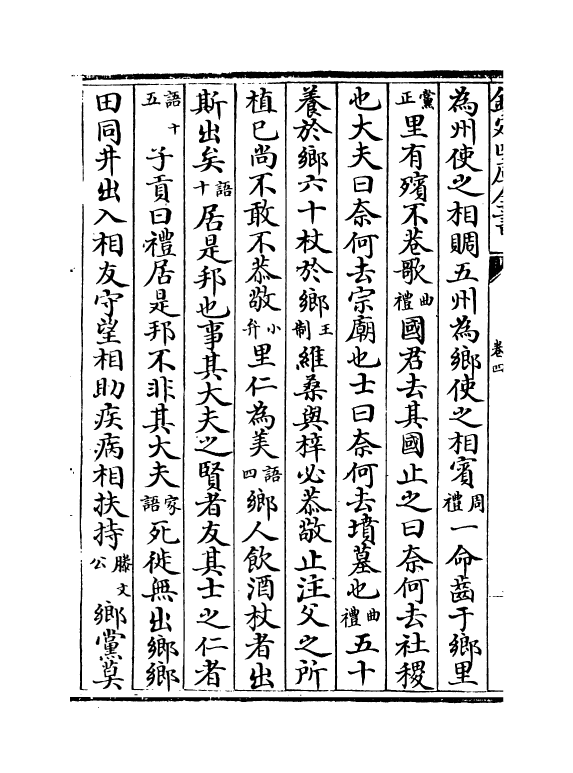 欽定四庫全書
卷四
為州使之相賙五州為鄉使之相賓周禮一命齒于鄉里
黨正里有殯不巷歌曲禮國君去其國止之曰奈何去社稷
也大夫曰奈何去宗廟也士曰奈何去墳墓也曲禮五十
養於鄉六十杖於鄉王制維桑與梓必恭敬止注父之所
植已尚不敢不恭敬小弁里仁為美語四鄉人飲酒杖者出
斯出矣語十居是邦也事其大夫之賢者友其士之仁者
語十五子貢曰禮居是邦不非其大夫家語死徙無出鄉鄉
田同井出入相友守望相助疾病相扶持滕文公鄉黨莫